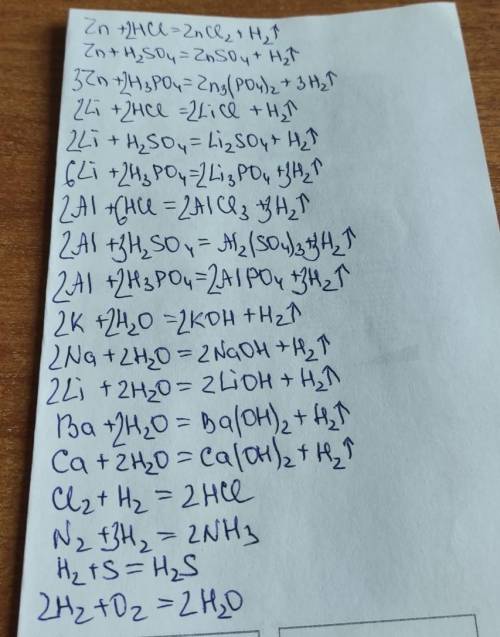 Zn + 2HCl = ZnCl₂ + H₂↑
Zn + H₂SO₄ = ZnSO₄ + H₂↑
3Zn + 2H₃PO₄ = Zn₃(PO₄)₂ + 3H₂↑
2Li + 2HCl = 2LiCl + H₂↑
2Li + H₂SO₄ = Li₂SO₄ + H₂↑
6Li + 2H₃PO₄ = 2Li₃PO₄ + 3H₂↑
2Al + 6HCl = 2AlCl₃ + 3H₂↑
2Al + 3H₂SO₄ = Al₂(SO₄)₃ + 3H₂↑
2Al + 2H₃PO₄ = 2AlPO₄ + 3H₂↑
2K + 2H₂O = 2KOH + H₂↑
2Na + 2H₂O = 2NaOH + H₂↑
2Li + 2H₂O = 2LiOH + H₂↑
Ba + 2H₂O = Ba(OH)₂ + H₂↑
Ca + 2H₂O = Ca(OH)₂ + H₂↑
Cl₂ + H₂ = 2HCl
N₂ + 3H₂ = 2NH₃
H₂ + S = H₂S
2H₂ + O₂ = 2H₂O